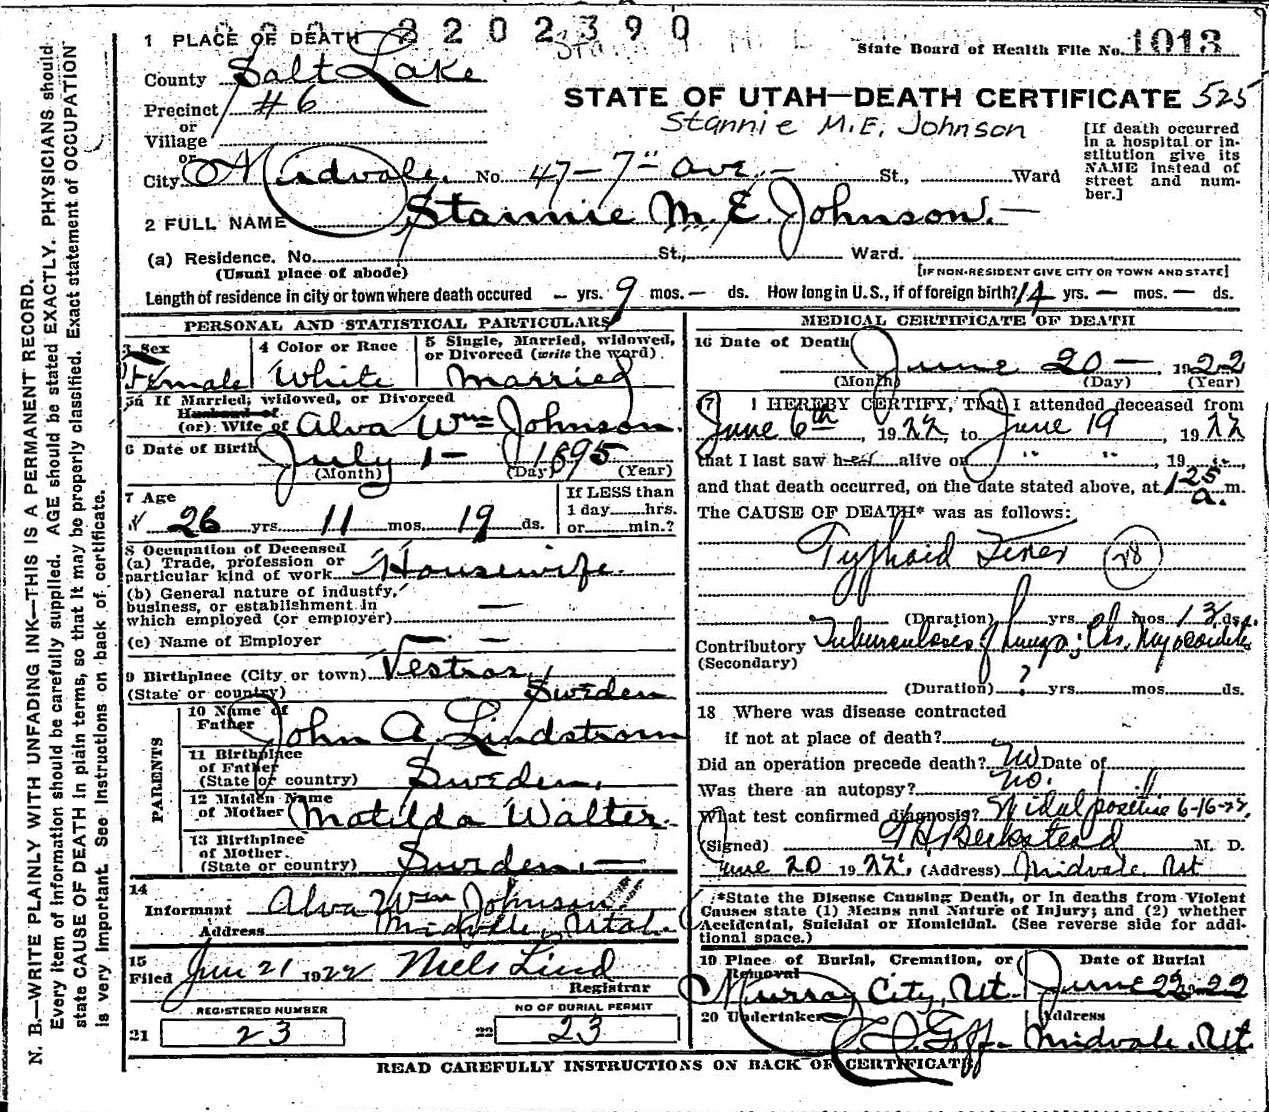 2202390
1 PLACE OF DEATH
State Board of Health File No. 1013
County Salt Lake
STATE OF UTAH—DEATH CERTIFICATE 525
Precinct #6
Stannie M.E. Johnson
or
Village
[If death occurred in a hospital or institution give its NAME instead of street and number.]
or
City Midvale. No. 47-7" ave. St., Ward
2 FULL NAME Stannie M. E. Johnson.
(a) Residence. No. St., Ward.
(Usual place of abode)
[IF NON-RESIDENT GIVE CITY OR TOWN AND STATE]
Length of residence in city or town where death occured – yrs. 9 mos. – ds. How long in U.S., if of foreign birth? 14 yrs. – mos. – ds.
PERSONAL AND STATISTICAL PARTICULARS
3 Sex
Female
4 Color or Race
White
5 Single, Married, widowed, or Divorced (write the word).
Married
5a If Married, widowed, or Divorced
Husband of
(or) Wife of Alva Wm Johnson.
6 Date of Birth July 1 - 1895
(Month) (Day) (Year)
7 Age
26 yrs. 11 mos. 19 ds.
If LESS than
1 day hrs.
or min.?
8 Occupation of Deceased
(a) Trade, profession or
particular kind of work Housewife.
(b) General nature of industry,
business, or establishment in
which employed (or employer) —
(c) Name of Employer —
9 Birthplace (City or town)
(State or country) Sweden
PARENTS
10 Name of Father John A. Lindstrom
11 Birthplace
of Father
(State or country) Sweden.
12 Maiden Name
of Mother Matilda Walter.
13 Birthplace
of Mother
(State or country) Sweden.—
14
Informant Alva Wm Johnson
Address Midvale, Utah.
15
Filed Jun 21 1922 Niels Lind
Registrar
REGISTERED NUMBER
21 23
NO OF BURIAL PERMIT
22 23
MEDICAL CERTIFICATE OF DEATH
16 Date of Death June 20 — , 1922
(Month) (Day) (Year)
17 I HEREBY CERTIFY, That I attended deceased from
June 6th, 1922, to June 19, 1922
that I last saw her alive on " " , 19 "
and that death occurred, on the date stated above, at 1-25 a. m.
The CAUSE OF DEATH* was as follows:
Typhoid Fever 28
(Duration) yrs. mos. 13 ds.
Contributory Tuberculoses of lungs; Chs. Myocarditis
(Secondary)
(Duration) ? yrs. mos. ds.
18 Where was disease contracted
if not at place of death?
Did an operation precede death? No Date of
Was there an autopsy? No.
What test confirmed diagnosis? Widal positive 6-16-22
(Signed) Beckstead M. D.
June 20 1922, (Address) Midvale Ut
*State the Disease Causing Death, or in deaths from Violent
Causes state (1) Means and Nature of Injury; and (2) whether
Accidental, Suicidal or Homicidal. (See reverse side for additional space.)
19 Place of Burial, Cremation, or Removal
Murray City, Ut.
Date of Burial
June 22, 22
20 Undertaker Goff
Address
Midvale, Ut.
READ CAREFULLY INSTRUCTIONS ON BACK OF CERTIFICATE
N. B.—WRITE PLAINLY WITH UNFADING INK—THIS IS A PERMANENT RECORD.
Every item of information should be carefully supplied. AGE should be stated EXACTLY. PHYSICIANS should
state CAUSE OF DEATH in plain terms, so that it may be properly classified. Exact statement of OCCUPATION
is very important. See Instructions on back of certificate.